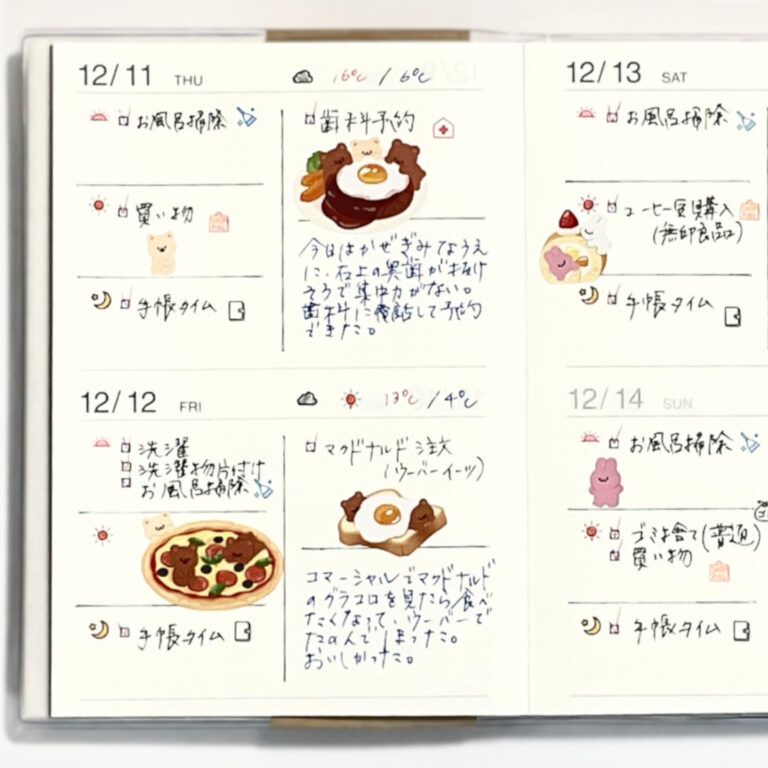 12/11 THU
16℃ / 6℃
お風呂掃除
買い物
手帳タイム
歯科予約
今日はかぜぎみなうえ
に、右上の奥歯がぬけ
そうで集中力がない。
歯科に電話して予約
できた。
12/12 FRI
13℃ / 4℃
洗濯
洗濯物片付け
お風呂掃除
手帳タイム
マクドナルド注文
(ウーバーイーツ)
コマーシャルでマクドナルド
のグラコロを見たら食べ
たくなって、ウーバーで
たのんでしまった。
おいしかった。
12/13 SAT
お風呂掃除
コーヒー豆購入
(無印良品)
手帳タイム
12/14 SUN
お風呂掃除
ゴミ捨て(普通)
買い物
手帳タイム